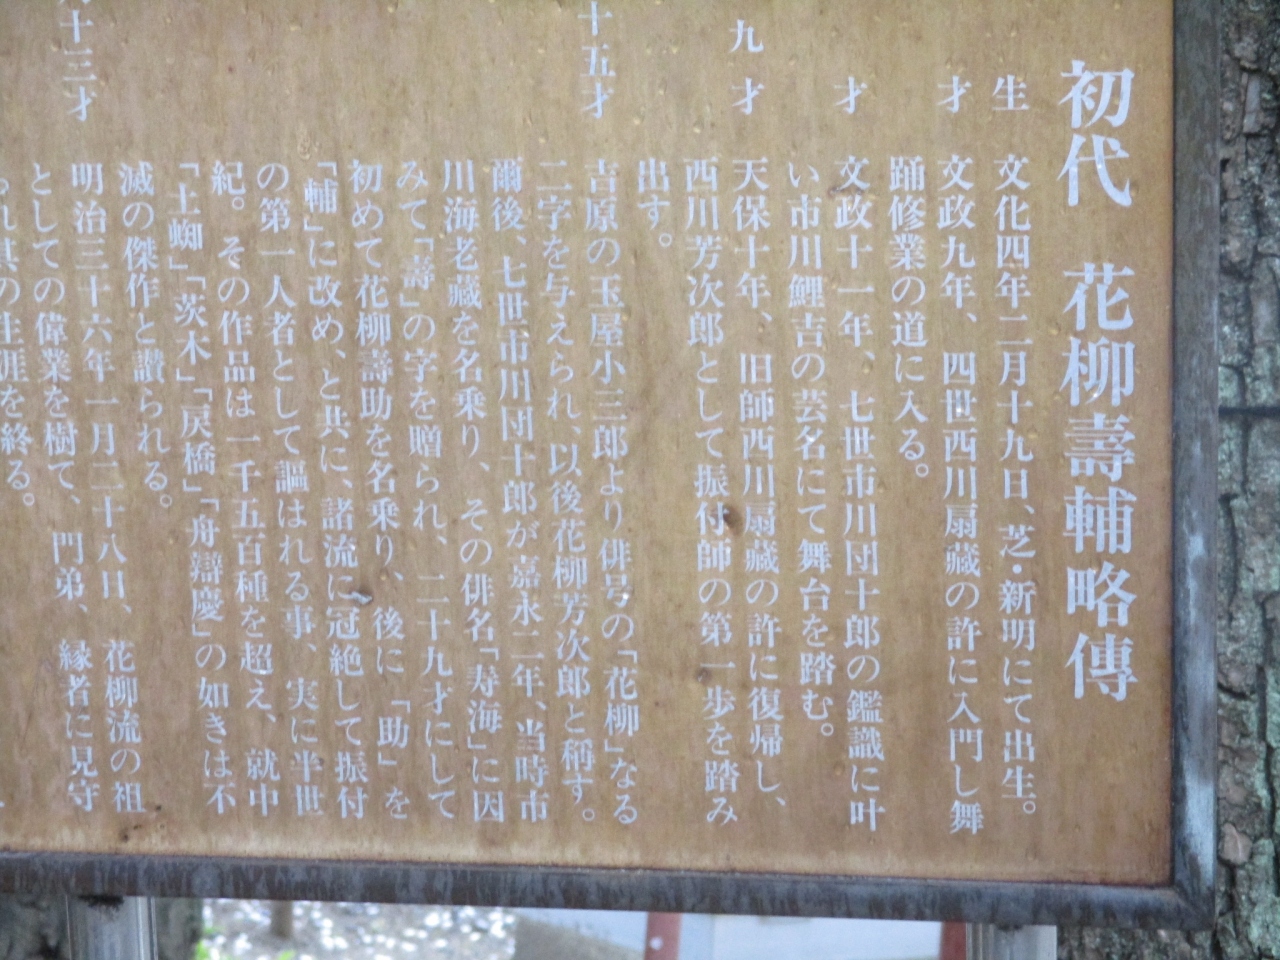 初代 花柳壽輔略傳
生 文化四年二月十九日、芝・新明にて出生。
才 文政九年、四世西川扇藏の許に入門し舞
踊修業の道に入る。
才 文政十一年、七世市川団十郎の鑑識に叶
い市川鯉吉の芸名にて舞台を踏む。
九才 天保十年、旧師西川扇藏の許に復帰し、
西川芳次郎として振付師の第一歩を踏み
出す。
十五才 吉原の玉屋小三郎より俳号の「花柳」なる
二字を与えられ、以後花柳芳次郎と称す。
爾後、七世市川団十郎が嘉永二年、当時市
川海老藏を名乗り、その俳名「寿海」に因
みて「壽」の字を贈られ、二十九才にして
初めて花柳壽助を名乗り、後に「助」を
「輔」に改め、と共に、諸流に冠絶して振付
の第一人者として謳はれる事、実に半世
紀。その作品は一千五百種を超え、就中
「土蜘」「茨木」「戻橋」「舟辯慶」の如きは不
滅の傑作と讃られる。
十三才 明治三十六年一月二十八日、花柳流の祖
としての偉業を樹て、門弟、縁者に見守
られ其の生涯を終る。